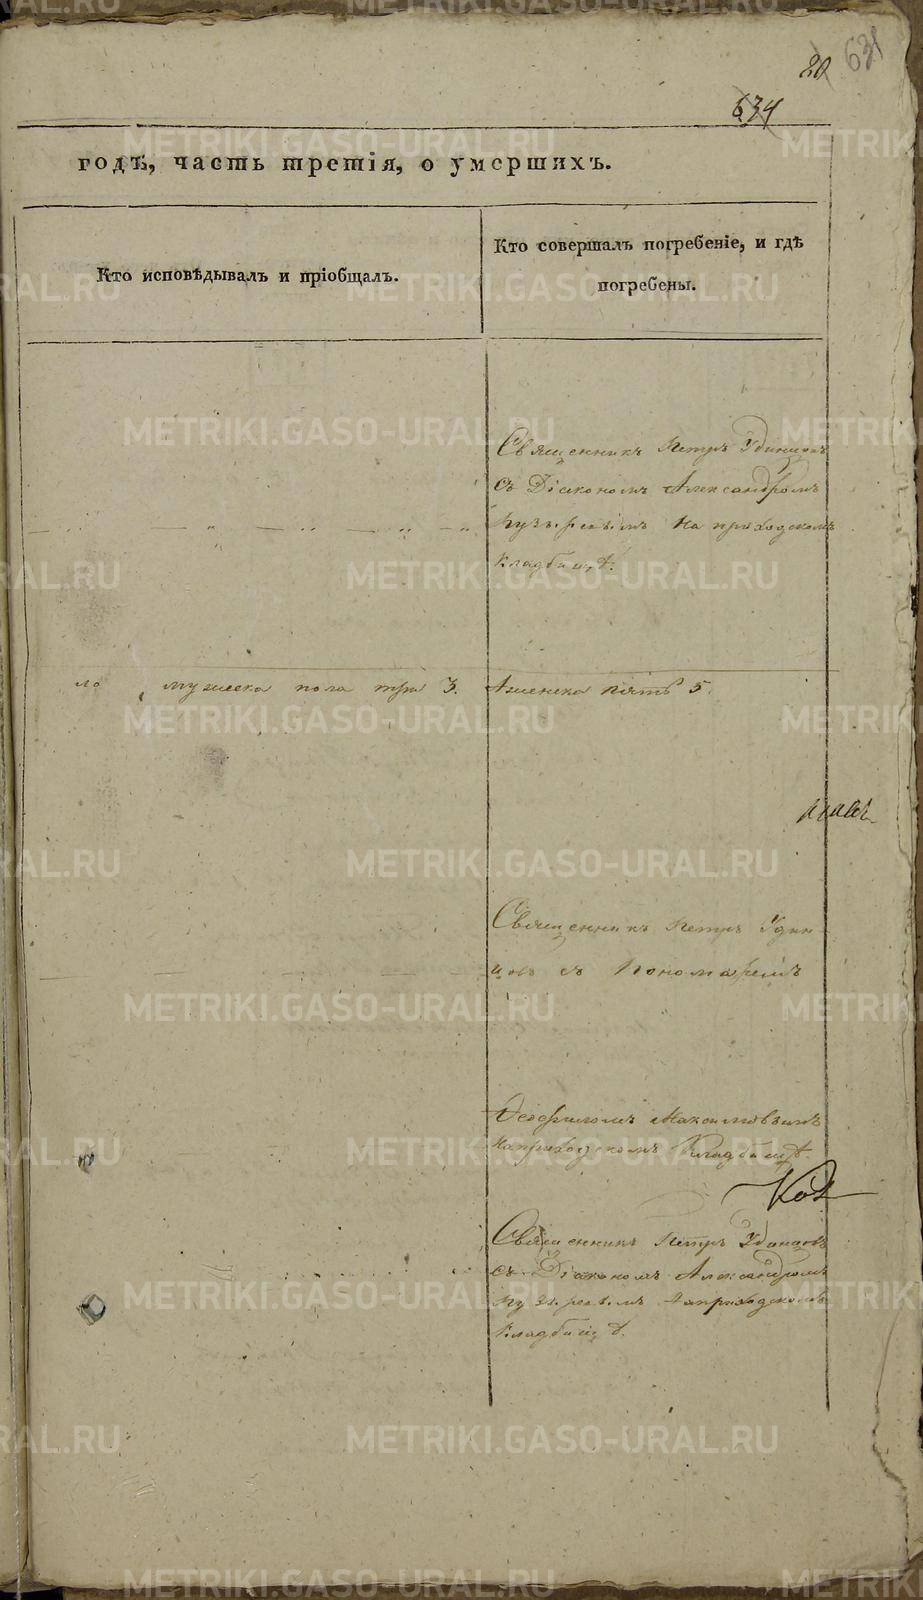 20 631
634
годѣ, часть третія, о умершихъ.
Кто исповѣдывалъ и пріобщалъ.
Кто совершалъ погребеніе, и гдѣ
погребены.
Священникъ Петръ Удинцовъ
съ Діакономъ Александромъ
на приходскомъ
кладбищѣ.
ло мужеска пола три 3. А женска пять 5.
Священникъ Петръ Удин
цовъ съ Пономаремъ
на приходскомъ кладбищѣ.
Священникъ Петръ Удинцовъ
съ Діакономъ Александромъ
на приходскомъ
кладбищѣ.
METRIKI.GASO-URAL.RU